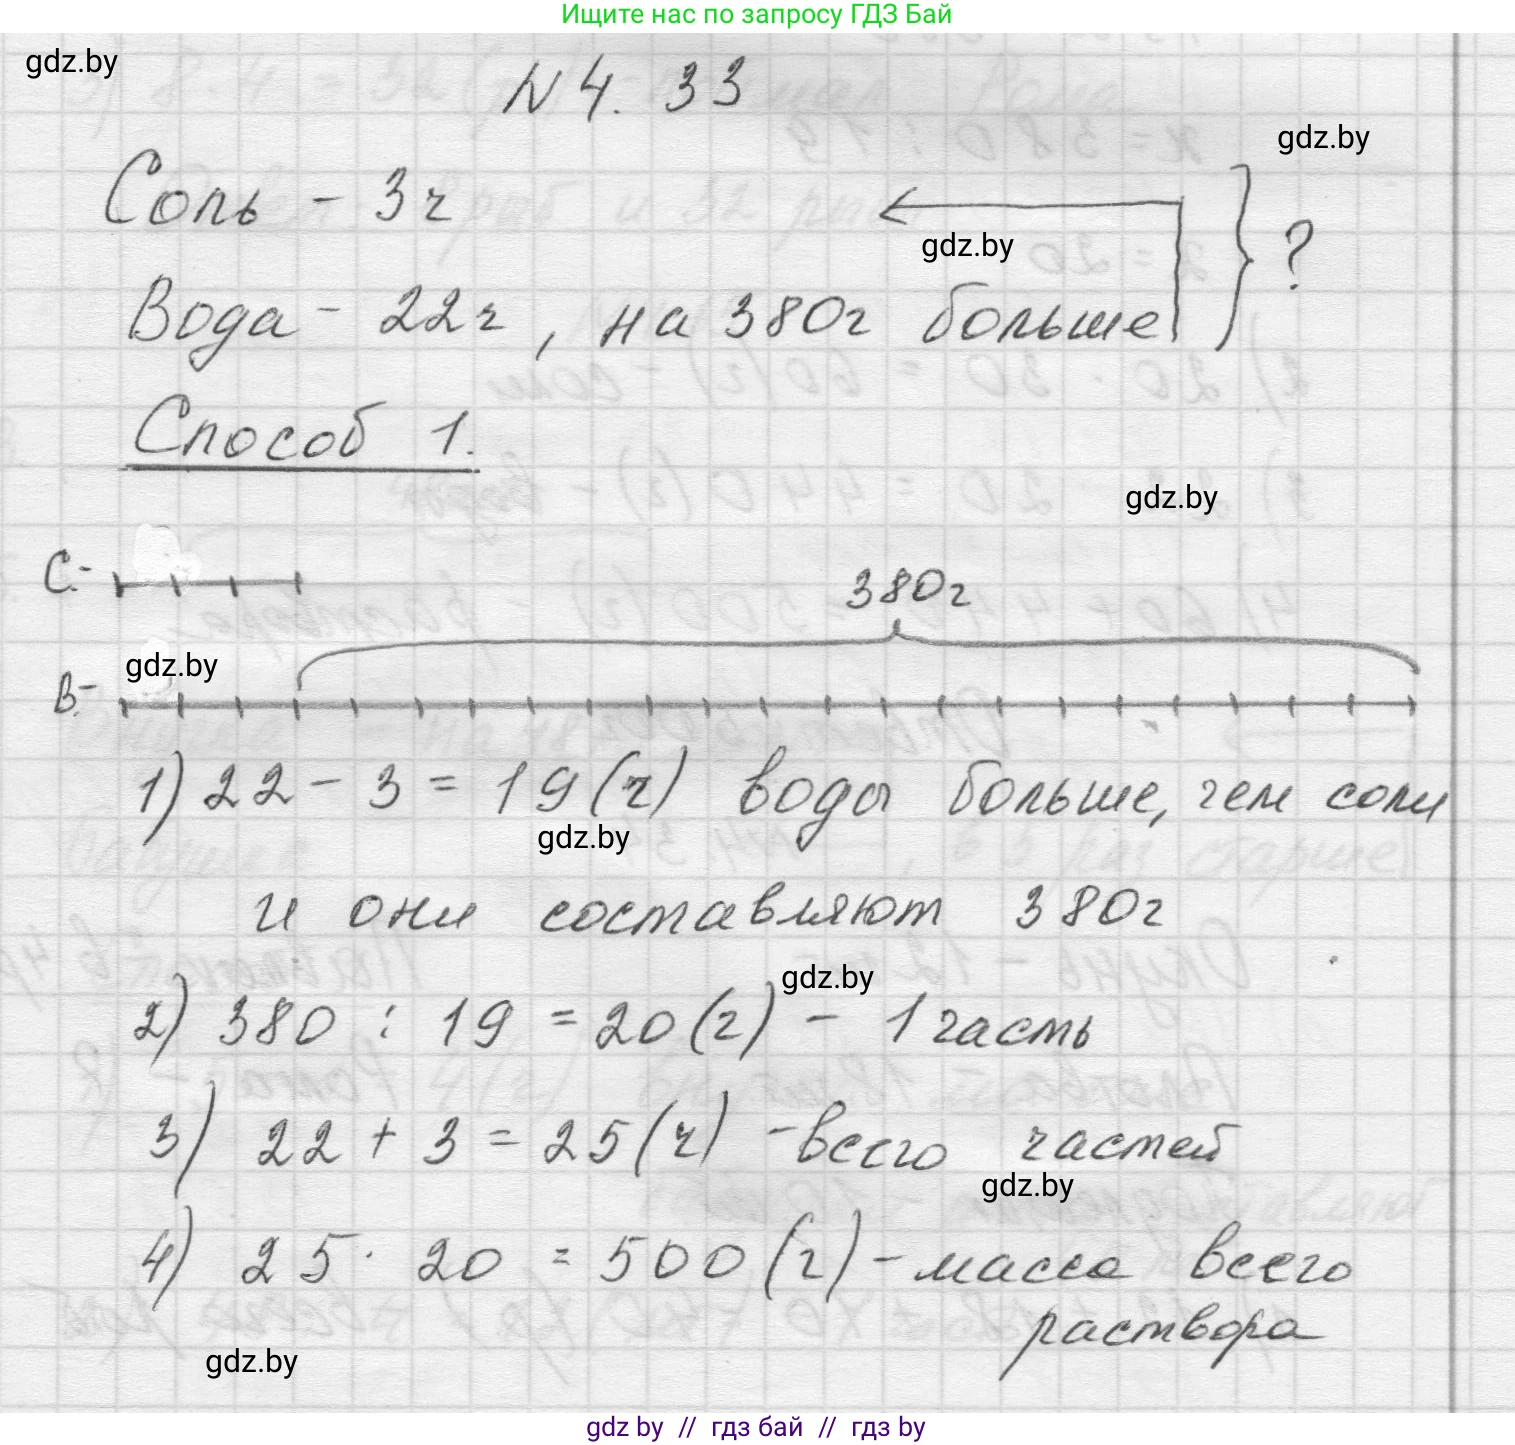 Ищите нас по запросу ГДЗ Бай
gdz.by
N 4. 33
gdz.by
Соль - 3ч
gdz.by
?
Вода - 22ч, на 380г больше
Способ 1.
gdz.by
С.-
380г
gdz.by
В.-
1) 22 - 3 = 19(ч) воды больше, чем соли
gdz.by
и они составляют 380г
gdz.by
2) 380 : 19 = 20(г) - 1 часть
3) 22 + 3 = 25(ч) - всего частей
gdz.by
4) 25 · 20 = 500(г) - масса всего
раствора
gdz.by
gdz by // гдз бай // гдз by